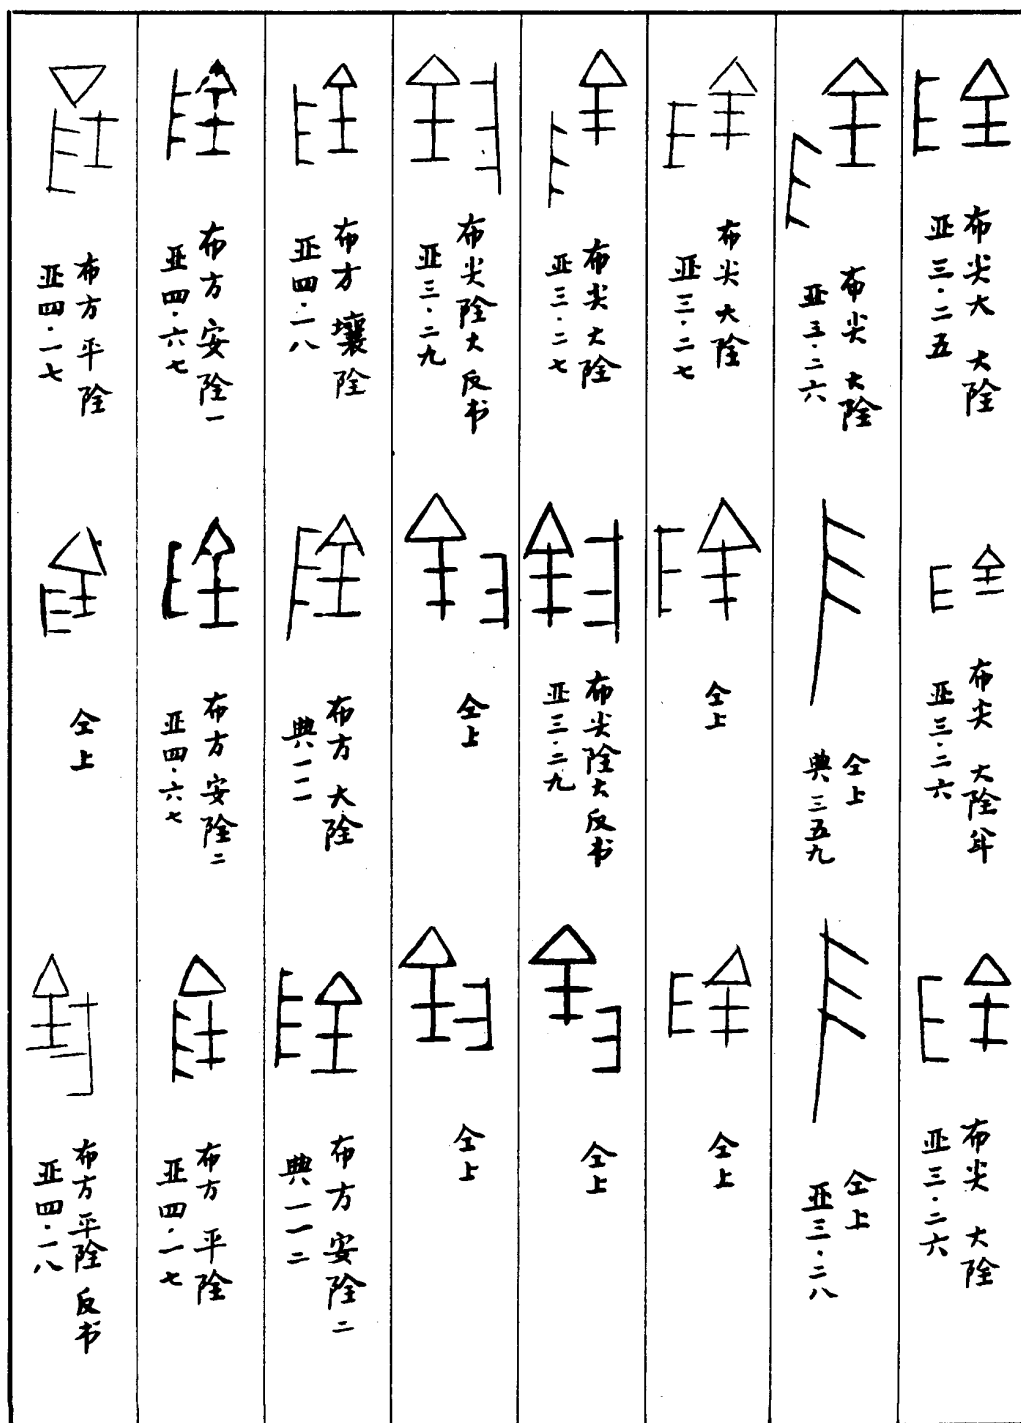 布尖大 大陰
亚三·二五
布尖 大陰 㡭
亚三·二六
布尖 大陰
亚三·二六
布尖 大陰
亚三·二六
仝上
典三五九
仝上
亚三·二八
布尖 大陰
亚三·二七
仝上
仝上
布尖 大陰
亚三·二七
布尖陰大反书
亚三·二九
仝上
布尖陰大反书
亚三·二九
仝上
仝上
布方 壤陰
亚四·一八
布方 大陰
典一一一
布方 安陰二
典一一二
布方 安陰一
亚四·六七
布方 安陰二
亚四·六七
布方 平陰
亚四·一七
布方 平陰
亚四·一七
仝上
布方 平陰 反书
亚四·一八